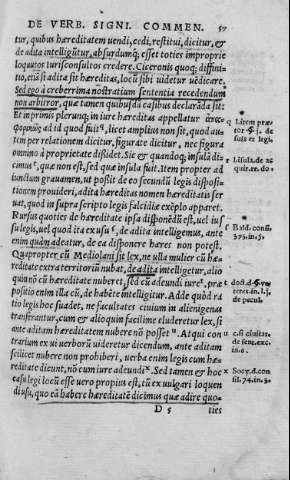 DE VERB. SIGNI. COMMEN. 57
tur, quibus hæreditatem uendi, cedi, restitui, dicitur, &
de adita intelligũtur, absurdumq; esset toties improprie
loquutos iurisconsultos credere. Ciceronis quoq; diffini-
tio, etiã si adita sit hæreditas, locũ sibi uidetur uẽdicare.
Sed ego à creberrima nostratium sententia recedendum
non arbitror, quæ tamen quibusdã casibus declarãda sit.
Et in primis plerunq; in iure hæreditas appellatur
ad id quod fuit q, licet amplius non sit, quod au-
tem per relationem dicitur, figurate dicitur, nec figura
omnino à proprietate dissidet. Sic & quandoq; insulã di-
cimus r, quæ non est, sed quæ insula fuit. Item propter ad
iundum grauamen, ut possit de eo secundũ legis disposi-
tionem prouideri, adita hæreditas nomen hæreditatis ser
uat, quod in supra scripto legis falcidiæ exẽplo apparet.
Rursus quoties de hæreditate ipsa dispõnendũ est, uel ius-
su legis, uel quod ita ex usu s, de adita intelligemus, ante
enim quàm adeatur, de ea disponere hæres non potest.
Quapropter cũ Mediolani sit lex, ne ulla mulier cũ hæ-
reditate extra territoriũ nubat, de adita intelligetur, alio
quin nõ cũ hæreditate nuberet, sed cũ adeundi iure t, præ
positio enim illa cũ, de habẽte intelligitur. Adde quòd ra
tio legis hoc suadet, ne facultates ciuium in alienigenas
transferantur, cum & alioquin facilime eluderetur lex, si
ante aditam hæreditatem nubere nõ posset u. At qui con
trarium ex ui uerborũ uideretur dicendum, ante aditam
scilicet nubere non prohiberi, uerba enim legis cum hæ-
reditate dicunt, nõ cum iure adeundi x. Sed tamen & hoc
casu legi locũ esse uero propius est, tũ ex uulgari loquen
di usu, quo eã habere hæreditatẽ dicimus quæ adire quo-
D 5 ties
q l item præ
tor §. j. de
suis & legi.
r l. isul. de ac
quir. re. do
s Bald. consil.
373. in. 5
t
teres. in. l. j.
de pecul.
u
de sent. exc.
in. 6.
x Socy. d. con
sil. 74. in. 3